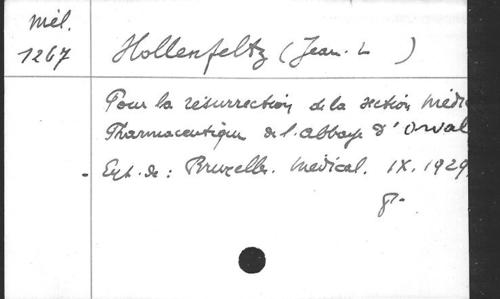 Mél.
1267
Hollenfeltz (Jean. L )
Pour la résurrection de la section Médic
Pharmaceutique de l'Abbaye d'Orval
- Ext. de : Bruxelles. Médical. IX. 1929,
8°-